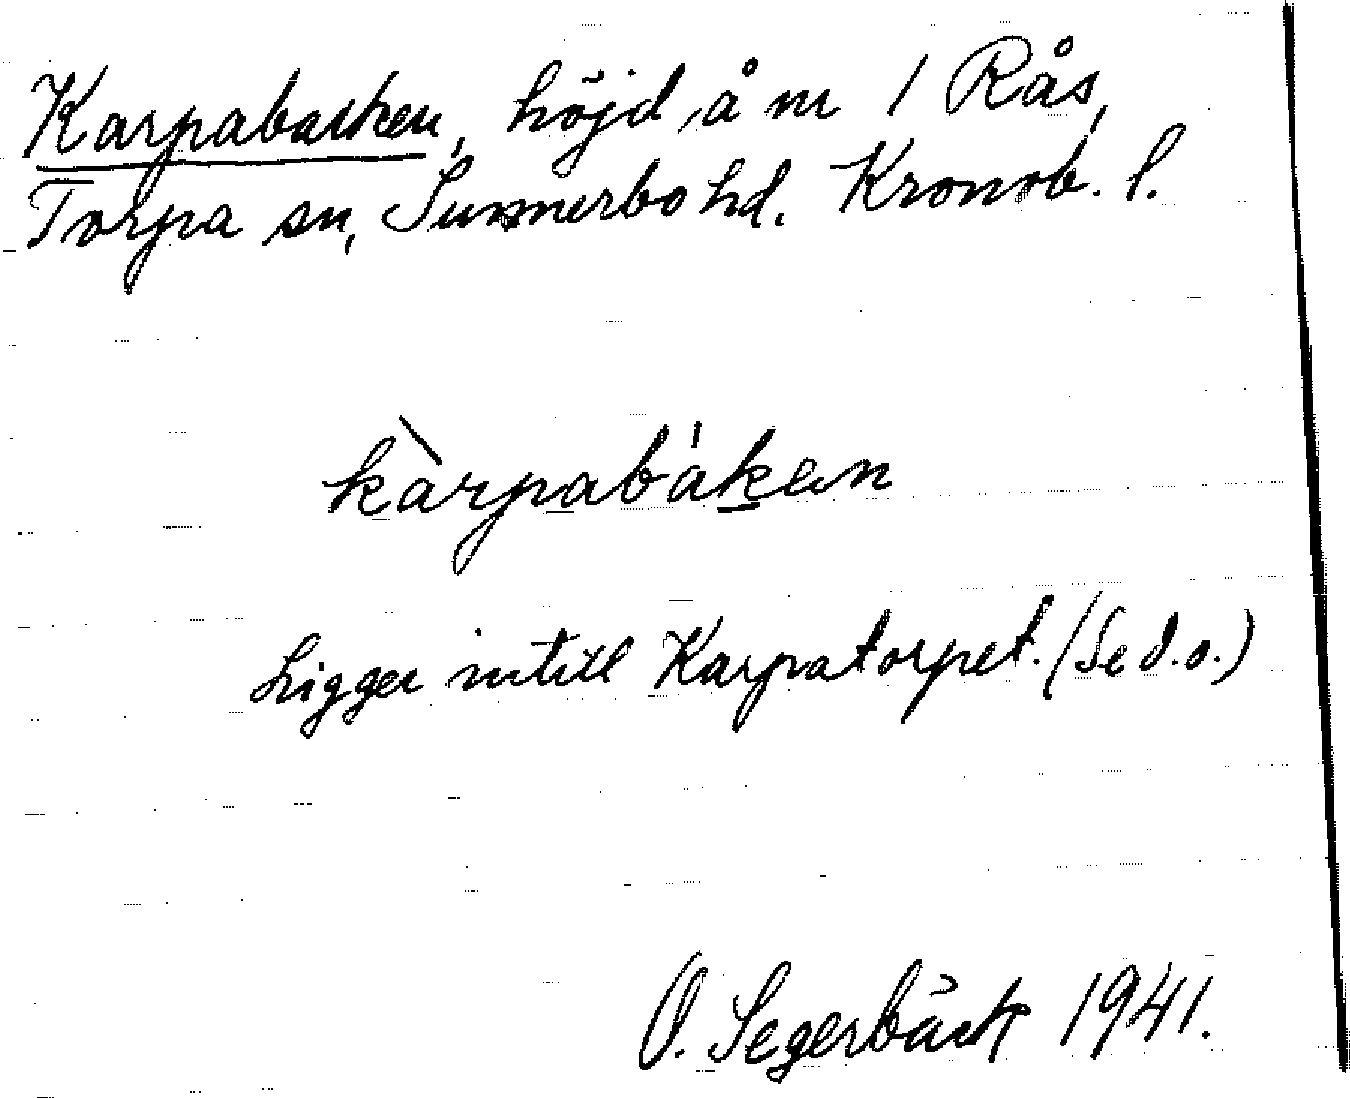 Karpabacken, höjd å nr 1 Rås,
Torpa sn, Sunnerbo hd. Kronob. l.
kàrpabák̲en
Ligger intill Karpatorpet. (Se d.o.)
O. Segerbäck 1941.